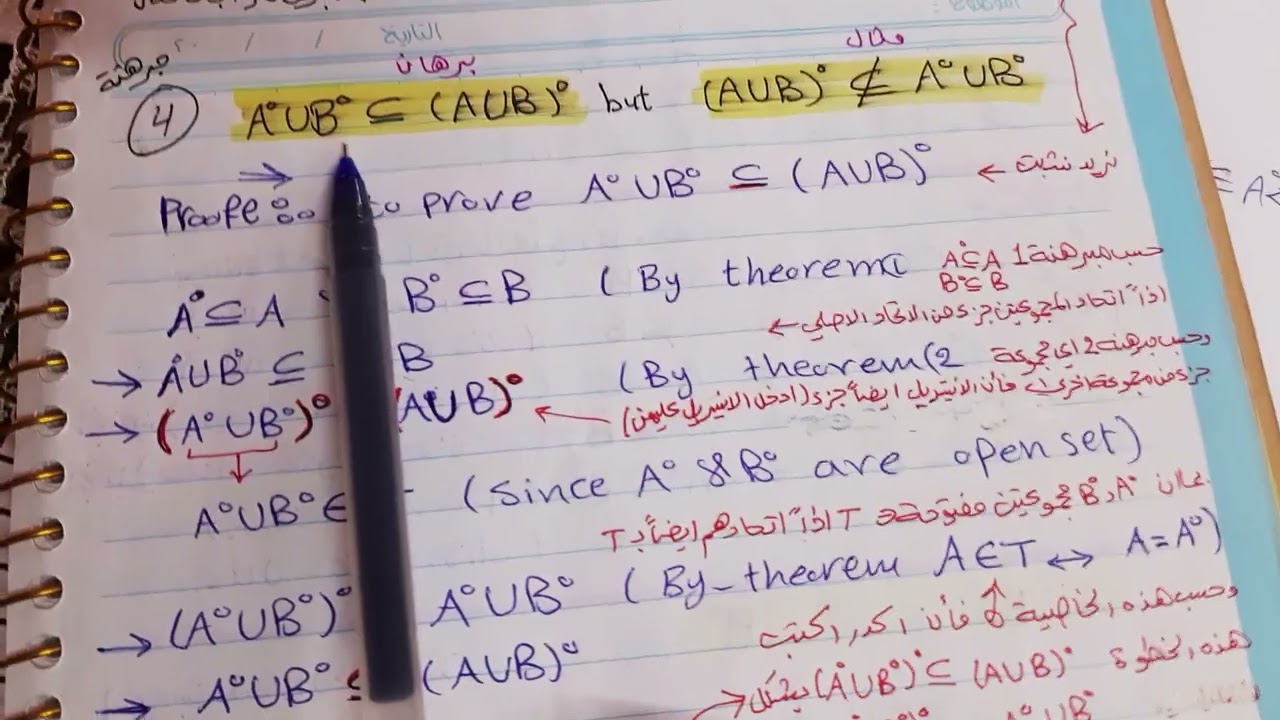 التاريخ / /
برهان مثال
مبرهنة
④ A°UB° ⊆ (AUB)° but (AUB)° ⊄ A°UB°
Proofe to prove A°UB° ⊆ (AUB)° ← نريد نثبت
A° ⊆ A B° ⊆ B (By theorem حسب مبرهنة 1 A°⊆A
B°⊆B
اذاً اتحاد المجموعتين جزء من الاتحاد الاصلي ←
→ A°UB° ⊆ B (By theorem(2 وحسب مبرهنة 2 اي مجموعة
جزء من مجموعة اخرى فأن الانتيريل ايضاً جزء (ادخل الانتيريل عليهن)
→ (A°UB°)° (AUB)° ←
A°UB° ∈ (since A° & B° are open set)
بما ان A°, B° مجموعتين مفتوحة T اذاً اتحادهم ايضاً بـ T
→ (A°UB°)° A°UB° (By-theorem A∈T ↔ A=A°)
وحسب هذه الخاصية فأن اكدر اكتب
→ A°UB° ⊆ (AUB)°
هذه الخطوة (A°UB°)° ⊆ (AUB)° بشكل
A°UB°